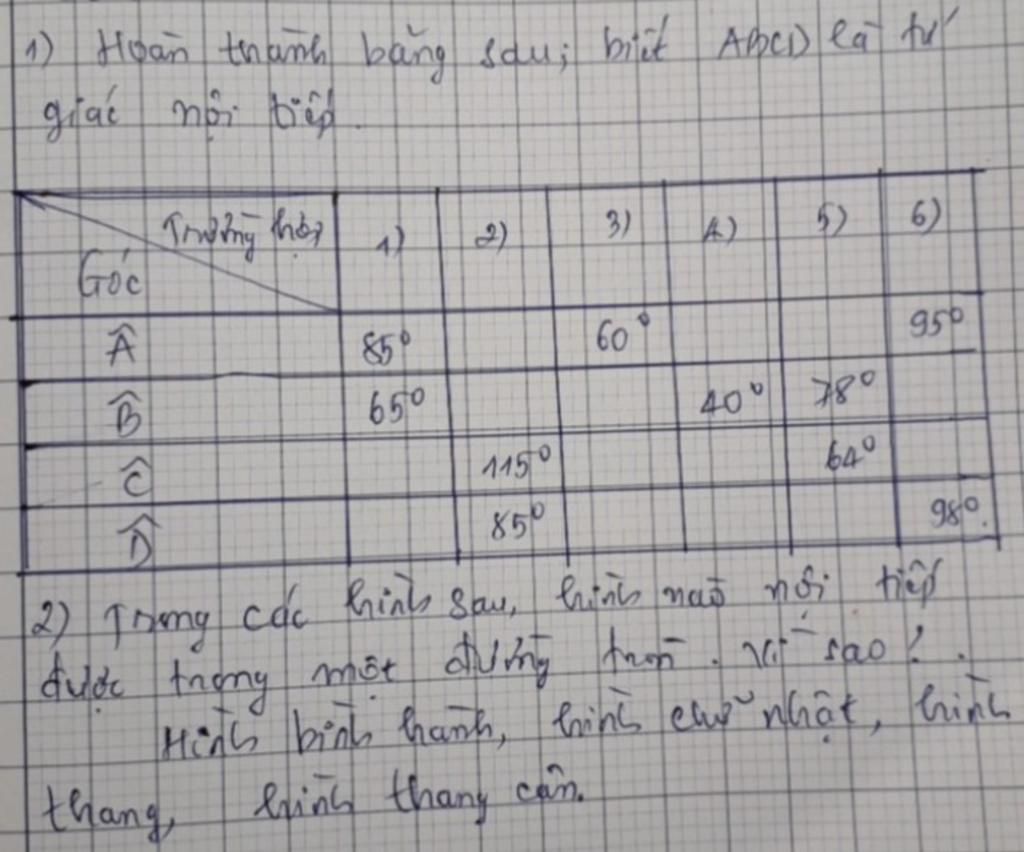 1) Hoàn thành bảng sau; biết ABCD là tứ
giác nội tiếp.
Trường hợp 1) 2) 3) 4) 5) 6)
Góc
Â 85° 60° 95°
B̂ 65° 40° 78°
Ĉ 115° 64°
D̂ 85° 98°.
2) Trong các hình sau, hình nào nội tiếp
được trong một đường tròn. Vì sao?.
Hình bình hành, hình chữ nhật, hình
thang, hình thang cân.